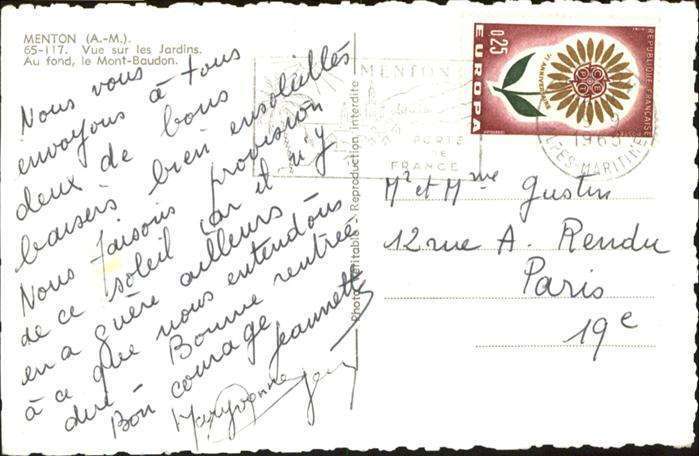 MENTON (A.-M.).
65-117. Vue sur les Jardins.
Au fond, le Mont-Baudon.
Nous vous
envoyons à tous
deux de bons
baisers bien ensoleillés
Nous faisons provision
de ce soleil car il n'y
en a guère ailleurs
à ce que nous entendons
dire Bonne rentrée
Bon courage
Jeannette
Maryvonne
Reproduction interdite
MENTON
PORTE
DE
FRANCE
0,25
EUROPA
REPUBLIQUE FRANÇAISE
CEPT
1965
ALPES-MARITIMES
Mr et Mme Gustin
12 rue A. Rendu
Paris
19e